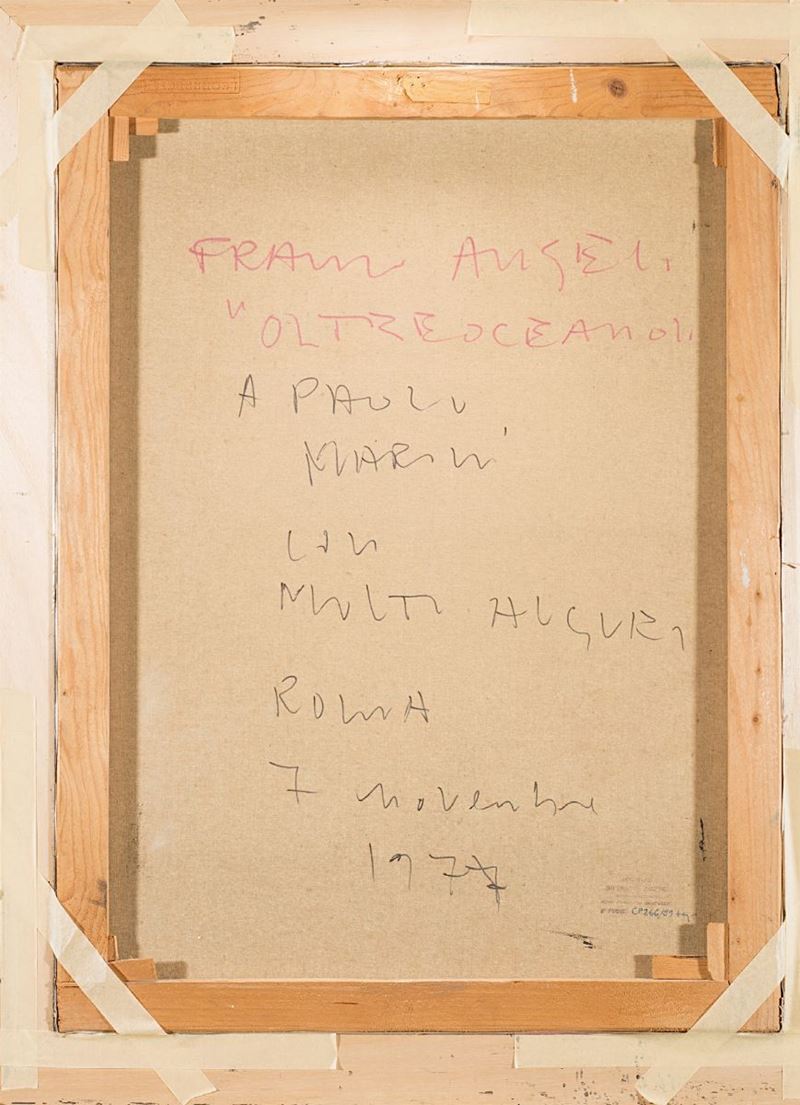 FRANCO ANGELI
"OLTREOCEANO"
A PAOLO
MARINI
CON
MOLTI AUGURI
ROMA
7 novembre
1977
CP266/89